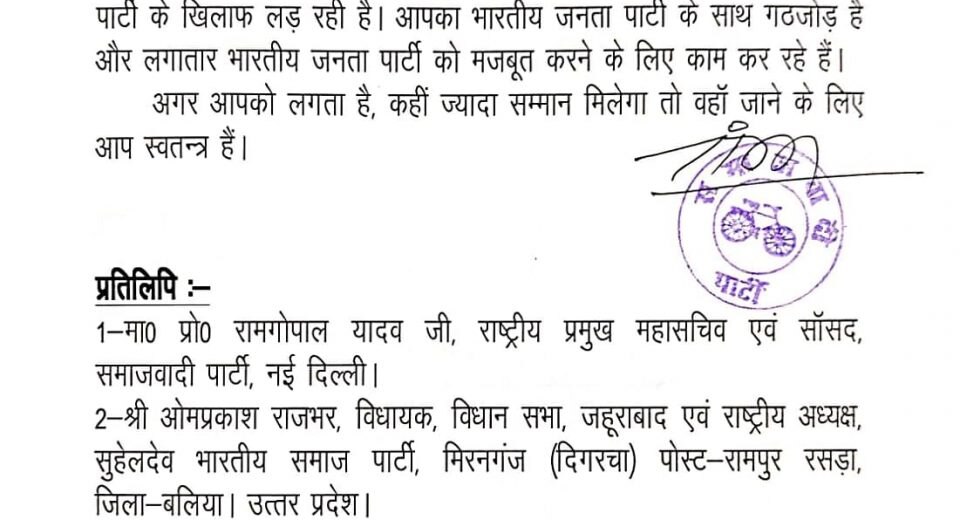 पार्टी के खिलाफ लड़ रही है। आपका भारतीय जनता पार्टी के साथ गठजोड़ है
और लगातार भारतीय जनता पार्टी को मजबूत करने के लिए काम कर रहे हैं।
अगर आपको लगता है, कहीं ज्यादा सम्मान मिलेगा तो वहॉ जाने के लिए
आप स्वतन्त्र हैं।
समाजवादी
पार्टी
प्रतिलिपि :–
1–मा0 प्रो0 रामगोपाल यादव जी, राष्ट्रीय प्रमुख महासचिव एवं सॉसद,
समाजवादी पार्टी, नई दिल्ली।
2–श्री ओमप्रकाश राजभर, विधायक, विधान सभा, जहूराबाद एवं राष्ट्रीय अध्यक्ष,
सुहेलदेव भारतीय समाज पार्टी, मिरनगंज (दिगरचा) पोस्ट–रामपुर रसड़ा,
जिला–बलिया। उत्तर प्रदेश।